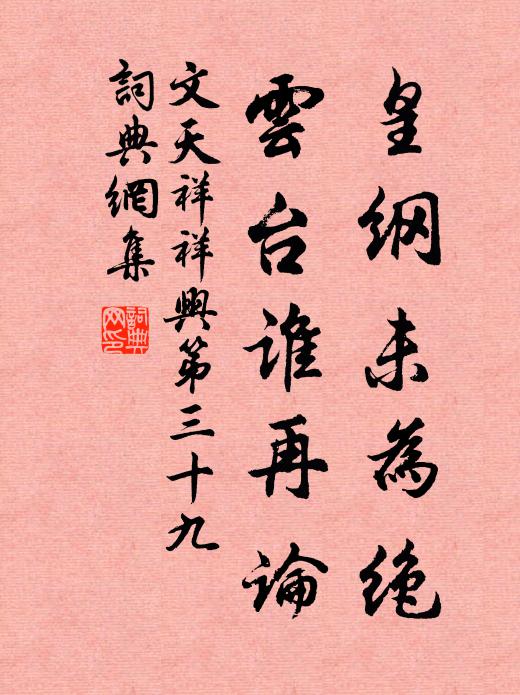 皇纲未為绝
雲台谁再论
文天祥祥興第三十九
詞典網集
詞典网印